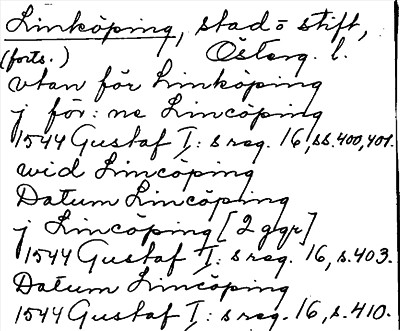 Linköping, stad o stift,
(forts.) Österg. l.
vtan för Linköping
j för: ne Lincöping
1544 Gustaf I: s reg. 16, ss. 400, 401.
wid Lincöping
Datum Lincöping
j Lincöping [2 ggr]
1544 Gustaf I: s reg. 16, s. 403.
Datum Lincöping
1544 Gustaf I: s reg. 16, s. 410.